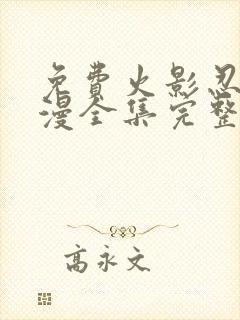 免费火影忍
漫全集完整
高永文